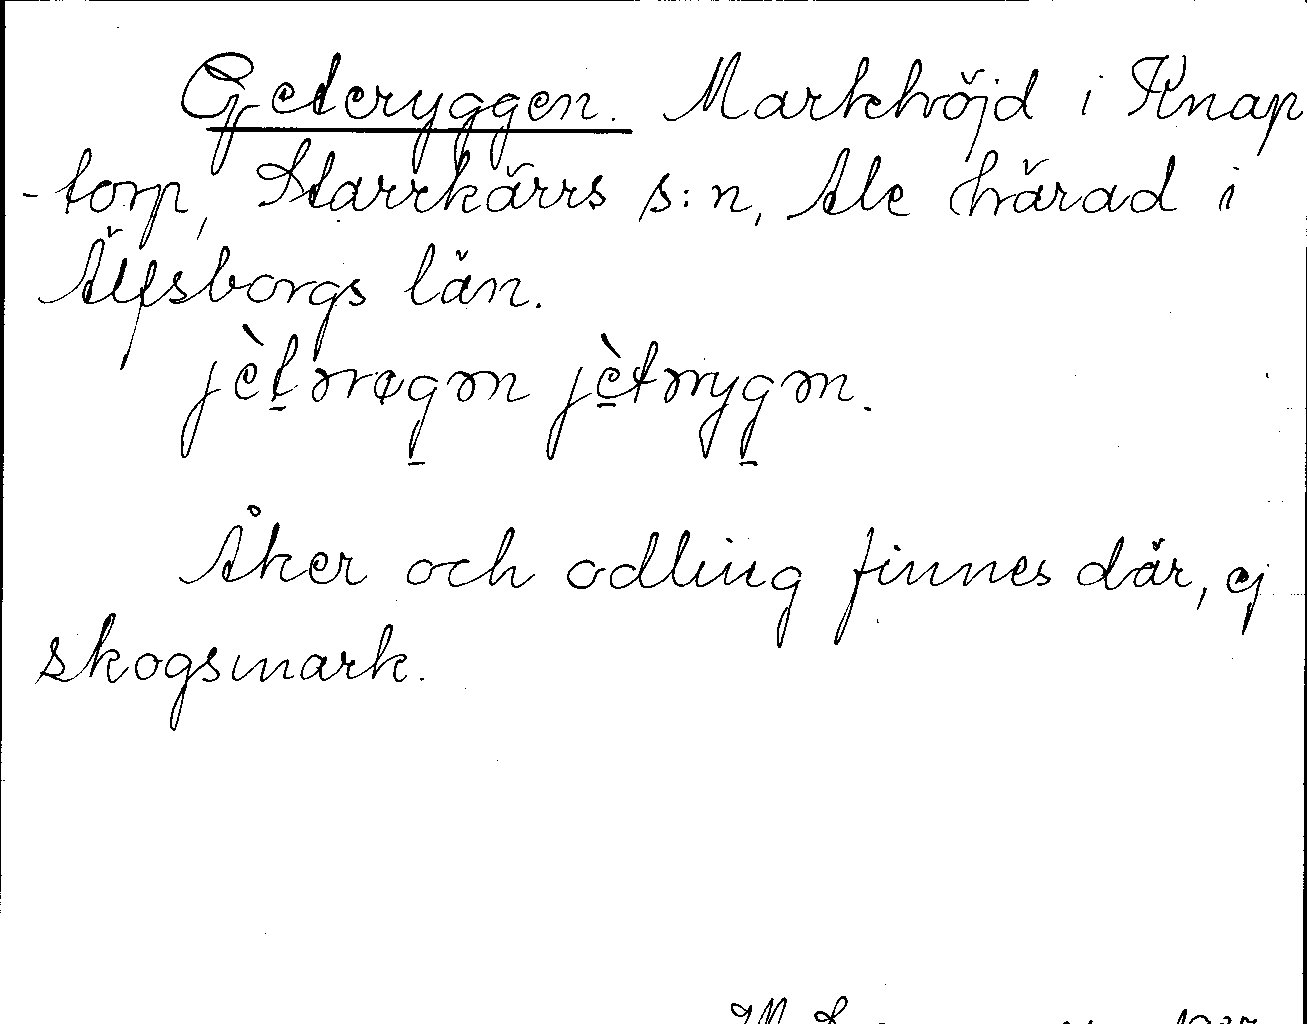 Geteryggen. Markhöjd i Knap
-torp, Starrkärrs s:n, Ale härad i
Älfsborgs län.
jètərøgən jètərygən.
Åker och odling finnes där, ej
skogsmark.